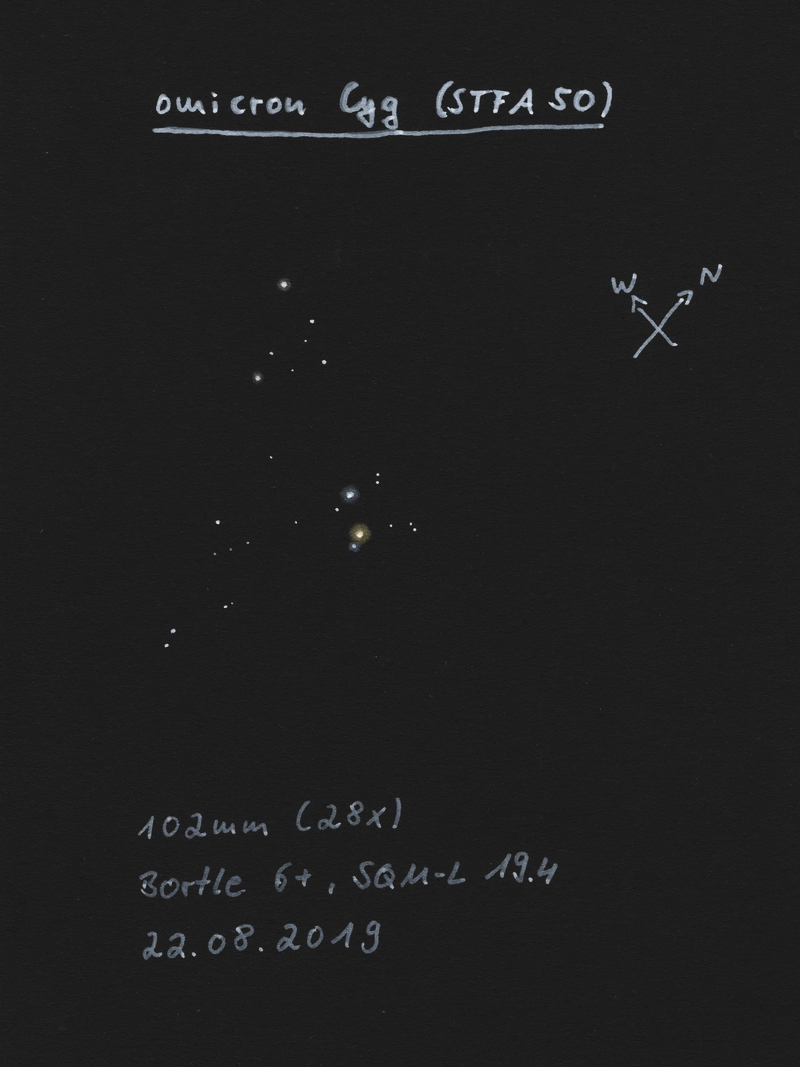 omicron Cyg (STFA 50)
W N
102mm (28x)
Bortle 6+, SQM-L 19.4
22.08.2019